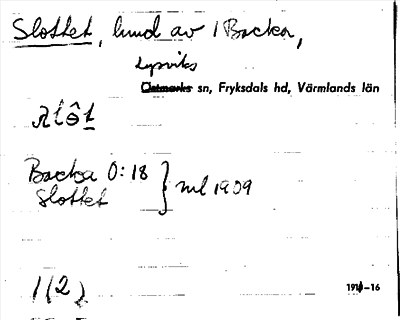 Slottet, hmd av 1 Backa,
Lysviks
Östmarks sn, Fryksdals hd, Värmlands län
Backa 0:18
Slottet } ml 1909
1(2)
1911-16